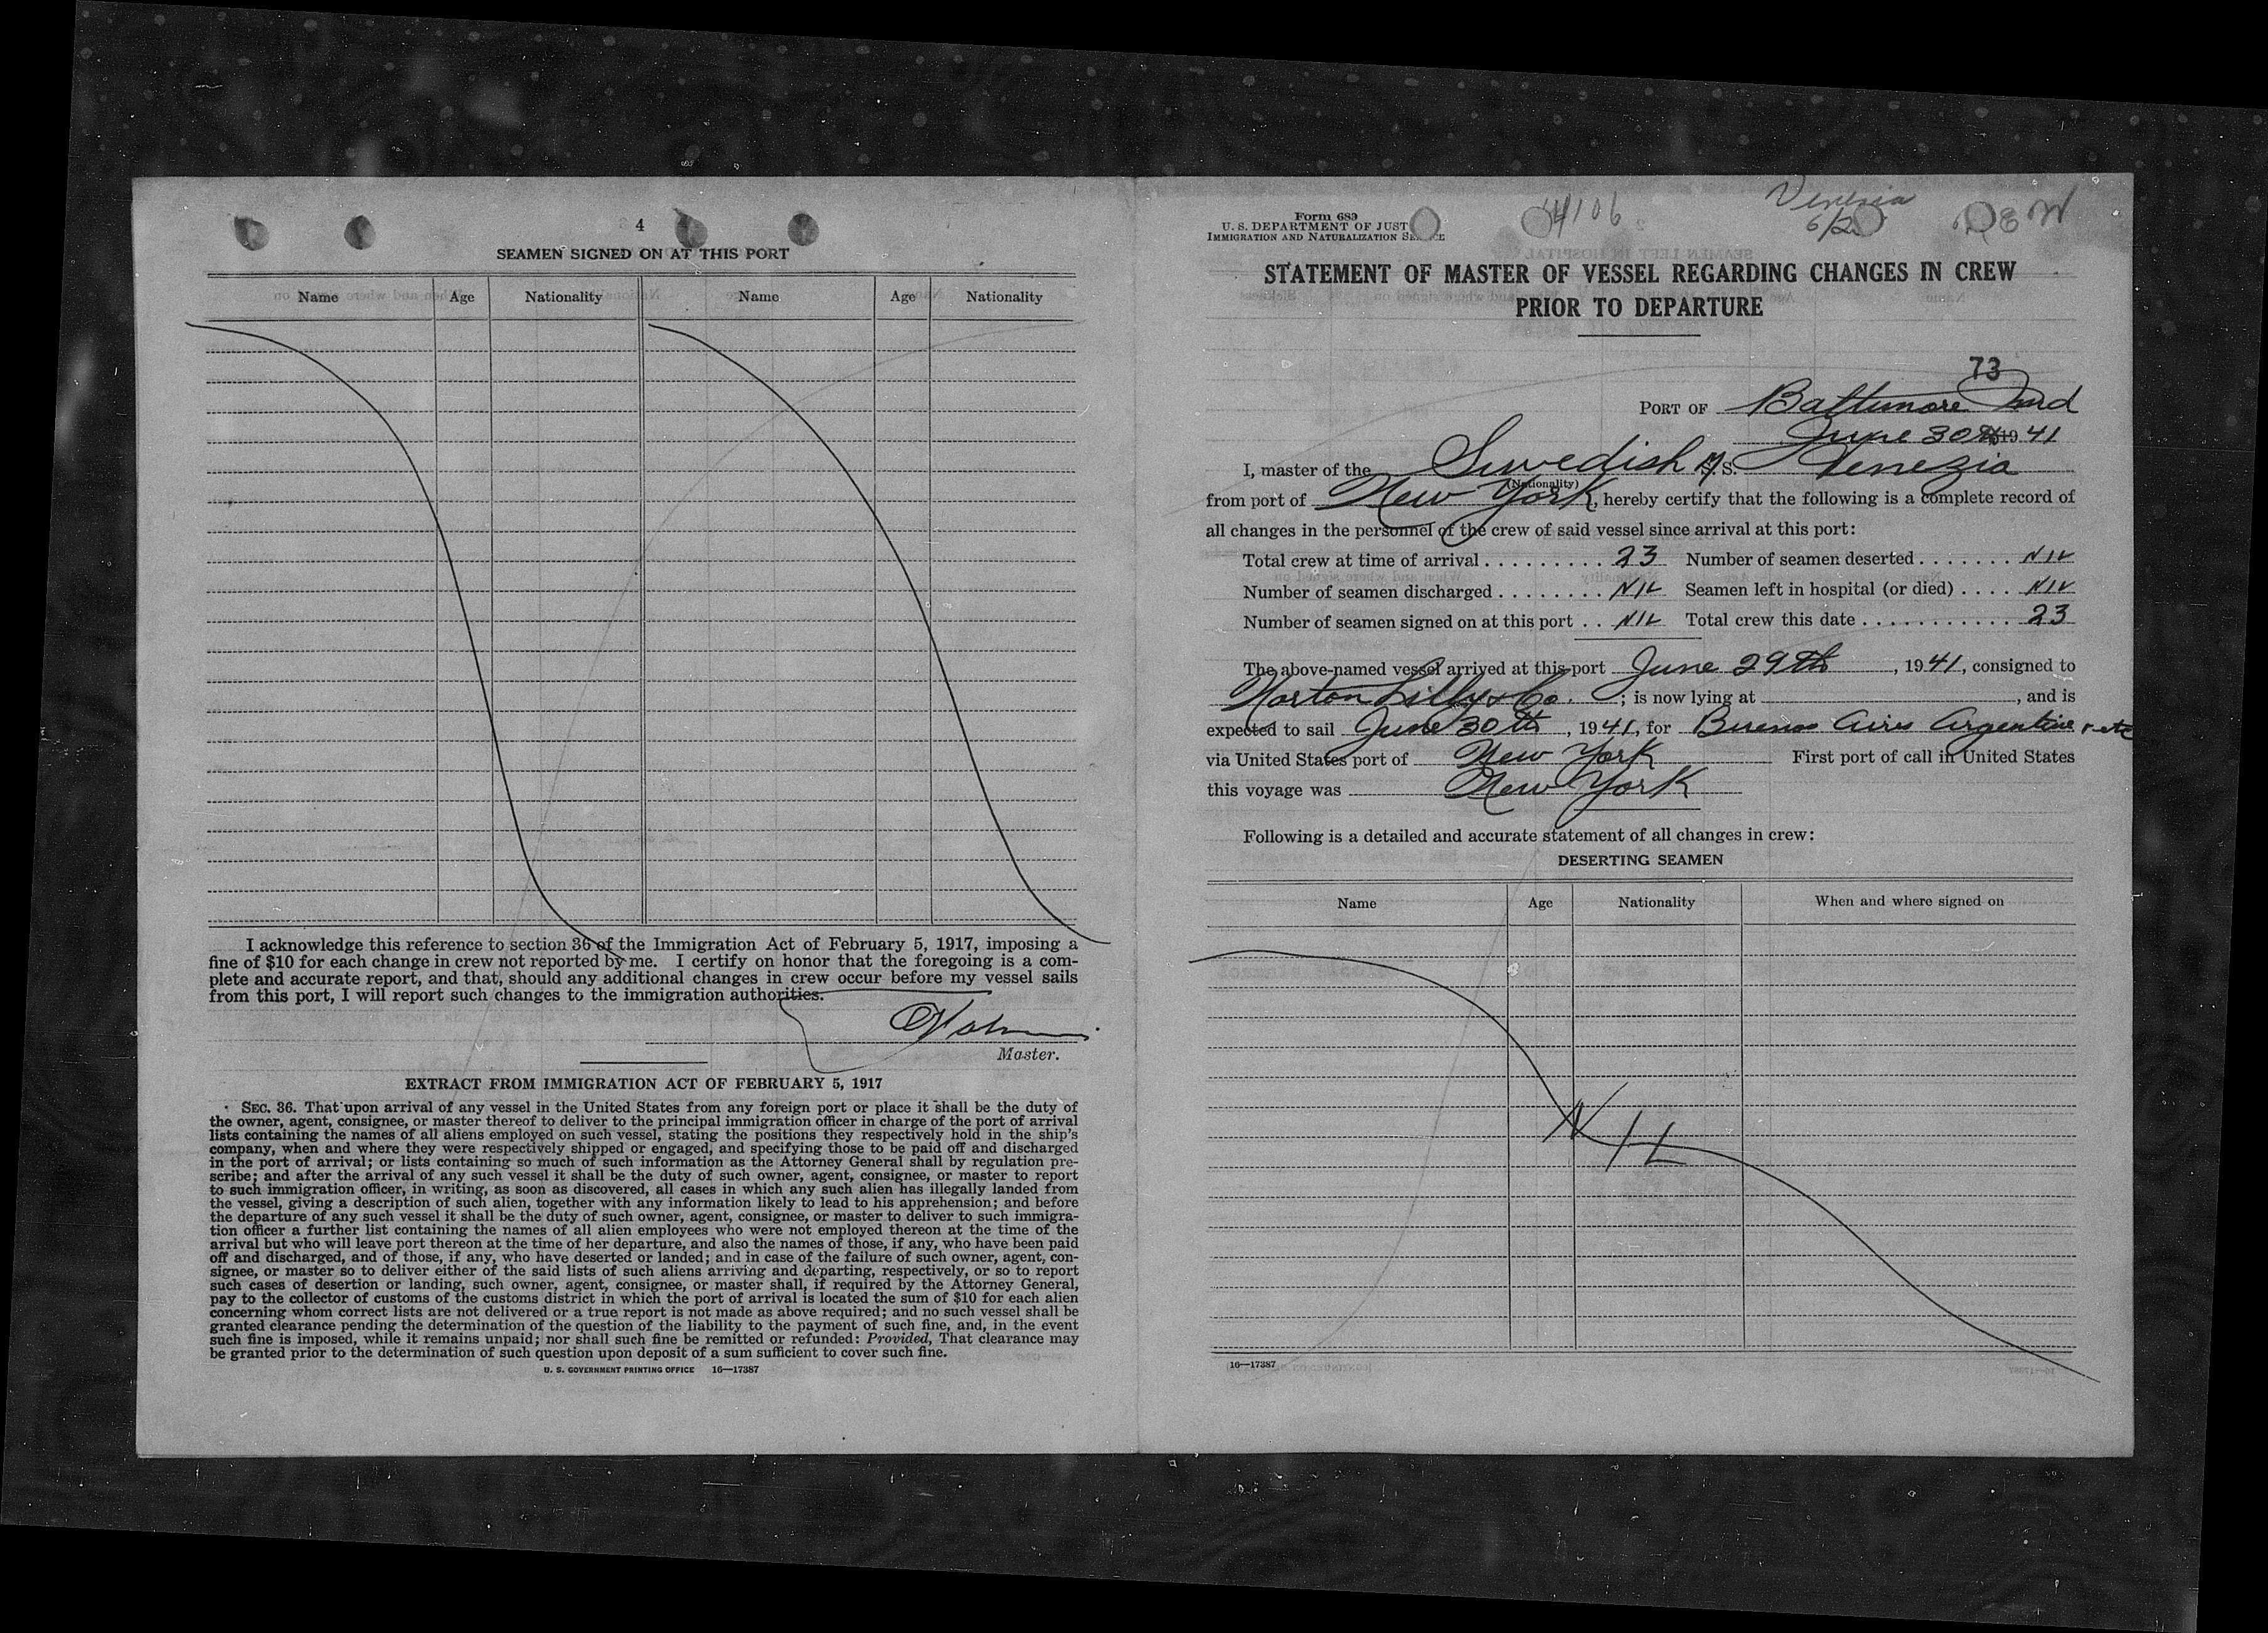 4
SEAMEN SIGNED ON AT THIS PORT
Name Age Nationality Name Age Nationality
I acknowledge this reference to section 36 of the Immigration Act of February 5, 1917, imposing a
fine of $10 for each change in crew not reported by me. I certify on honor that the foregoing is a com-
plete and accurate report, and that, should any additional changes in crew occur before my vessel sails
from this port, I will report such changes to the immigration authorities.
Master.
EXTRACT FROM IMMIGRATION ACT OF FEBRUARY 5, 1917
SEC. 36. That upon arrival of any vessel in the United States from any foreign port or place it shall be the duty of
the owner, agent, consignee, or master thereof to deliver to the principal immigration officer in charge of the port of arrival
lists containing the names of all aliens employed on such vessel, stating the positions they respectively hold in the ship's
company, when and where they were respectively shipped or engaged, and specifying those to be paid off and discharged
in the port of arrival; or lists containing so much of such information as the Attorney General shall by regulation pre-
scribe; and after the arrival of any such vessel it shall be the duty of such owner, agent, consignee, or master to report
to such immigration officer, in writing, as soon as discovered, all cases in which any such alien has illegally landed from
the vessel, giving a description of such alien, together with any information likely to lead to his apprehension; and before
the departure of any such vessel it shall be the duty of such owner, agent, consignee, or master to deliver to such immigra-
tion officer a further list containing the names of all alien employees who were not employed thereon at the time of the
arrival but who will leave port thereon at the time of her departure, and also the names of those, if any, who have been paid
off and discharged, and of those, if any, who have deserted or landed; and in case of the failure of such owner, agent, con-
signee, or master so to deliver either of the said lists of such aliens arriving and departing, respectively, or so to report
such cases of desertion or landing, such owner, agent, consignee, or master shall, if required by the Attorney General,
pay to the collector of customs of the customs district in which the port of arrival is located the sum of $10 for each alien
concerning whom correct lists are not delivered or a true report is not made as above required; and no such vessel shall be
granted clearance pending the determination of the question of the liability to the payment of such fine, and, in the event
such fine is imposed, while it remains unpaid; nor shall such fine be remitted or refunded: Provided, That clearance may
be granted prior to the determination of such question upon deposit of a sum sufficient to cover such fine.
U. S. GOVERNMENT PRINTING OFFICE 16—17387
Form 689
U. S. DEPARTMENT OF JUST
IMMIGRATION AND NATURALIZATION
Venezia
STATEMENT OF MASTER OF VESSEL REGARDING CHANGES IN CREW
PRIOR TO DEPARTURE
73
PORT OF Baltimore Md
June 30th 1941
I, master of the Swedish M.S. Venezia
(Nationality)
from port of New York, hereby certify that the following is a complete record of
all changes in the personnel of the crew of said vessel since arrival at this port:
Total crew at time of arrival . . . . . . . . . 23 Number of seamen deserted . . . . . . . NIL
Number of seamen discharged . . . . . . . . NIL Seamen left in hospital (or died) . . . . NIL
Number of seamen signed on at this port . . NIL Total crew this date . . . . . . . . . . . . 23
The above-named vessel arrived at this port June 29th, 1941, consigned to
Norton Lilly & Co. ; is now lying at , and is
expected to sail June 30th, 1941, for Buenos Aires Argentine & etc
via United States port of New York First port of call in United States
this voyage was New York
Following is a detailed and accurate statement of all changes in crew:
DESERTING SEAMEN
Name Age Nationality When and where signed on
NIL
16—17387